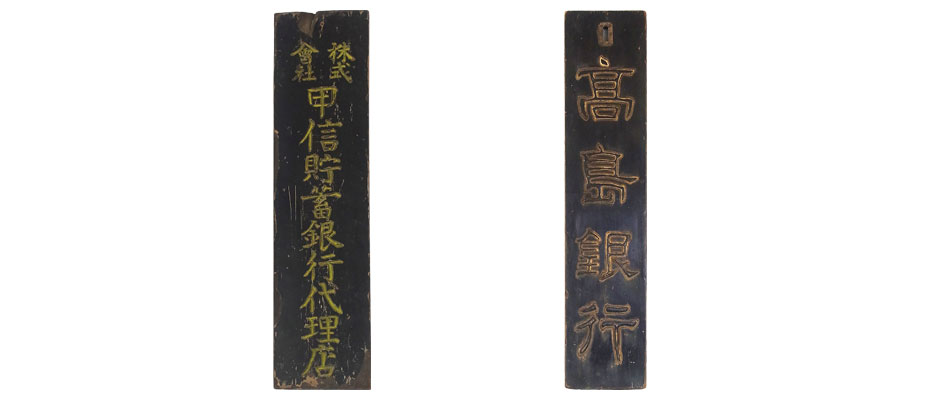 株式
會社
甲信貯蓄銀行代理店
高島銀行